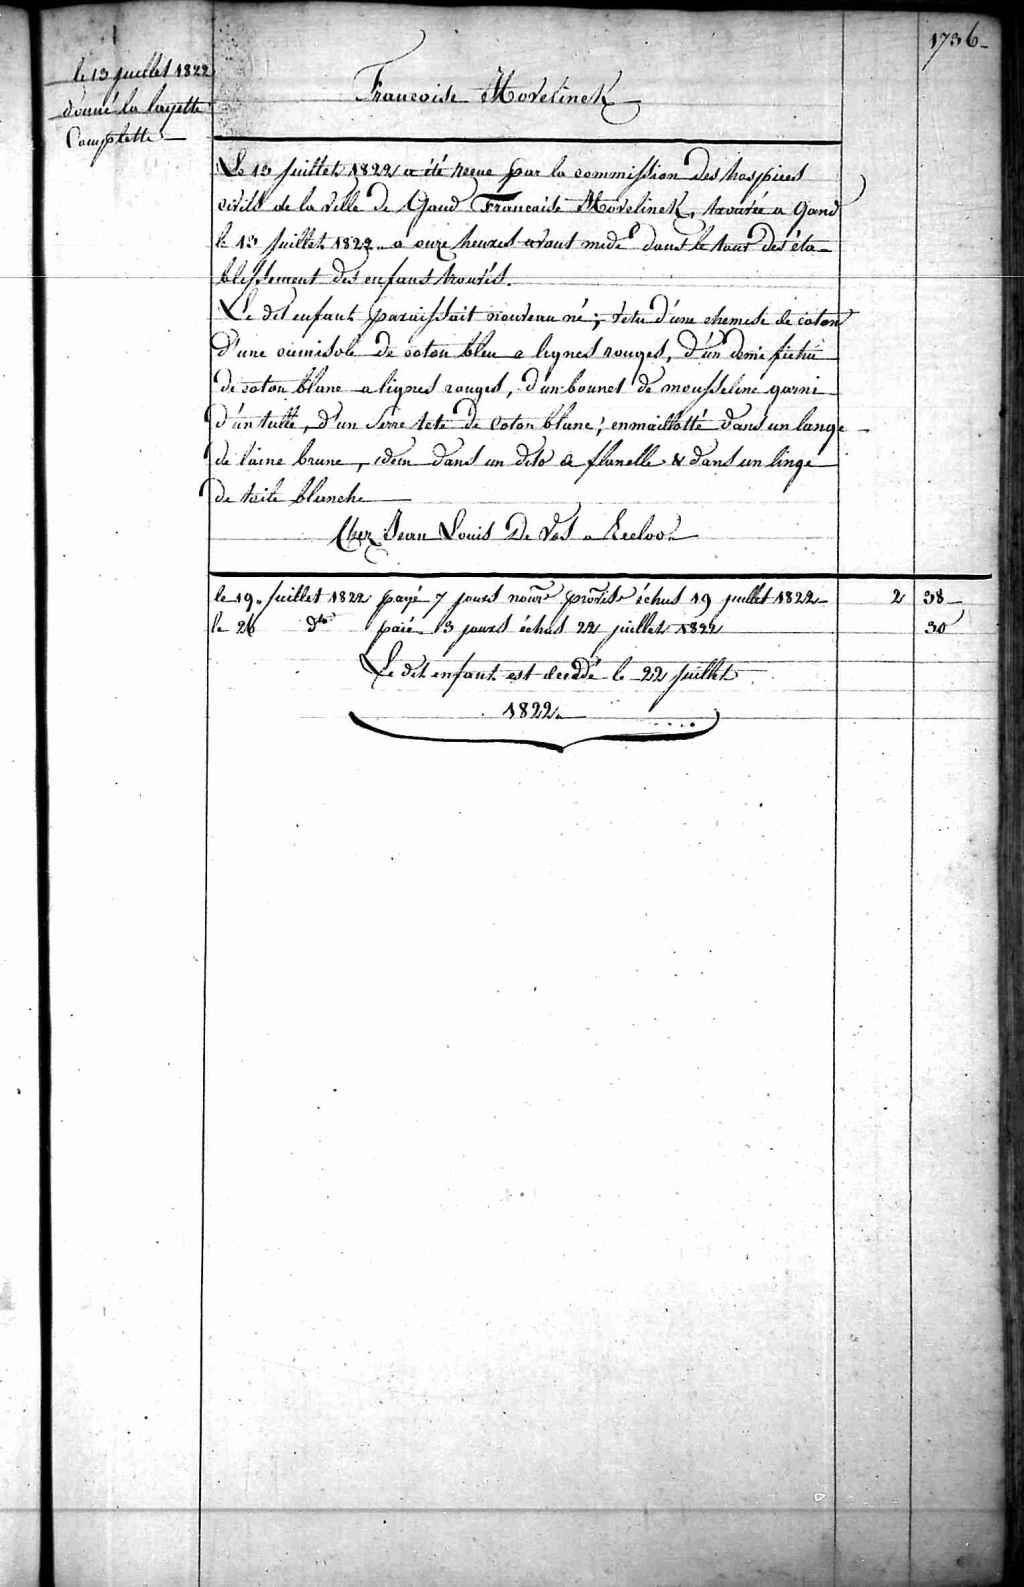 1736
le 13 juillet 1822
donné la layette
Complette
Francoise Morelinck
Le 13 Juillet 1822 a été recue par la commission des hospices
civils de la ville de Gand Francoise Morelinck, trouvée a Gand
le 13 Juillet 1822 a onze heures avant midi dans le tour des éta-
blissement des enfans trouvés.
Le dit enfant paraissait nouveau né; vetu d'une chemise de coton
d'une camisole de coton bleu a lignes rouges, d'un demi fichu
de coton blanc a lignes rouges, d'un bonnet de mousseline garni
d'un tulle, d'un Serre tete de coton blanc; enmaillotté dans un lange
de laine brune, idem dans un dito de flanelle & dans un linge
de toile blanche
Chez Jean Louis De Vos a Eecloo
le 19 Juillet 1822 payé 7 jours nourre provise échus 19 juillet 1822 2 38
le 26 dto paié 3 jours échus 22 juillet 1822 30
Le dit enfant est decedé le 22 Juillet
1822